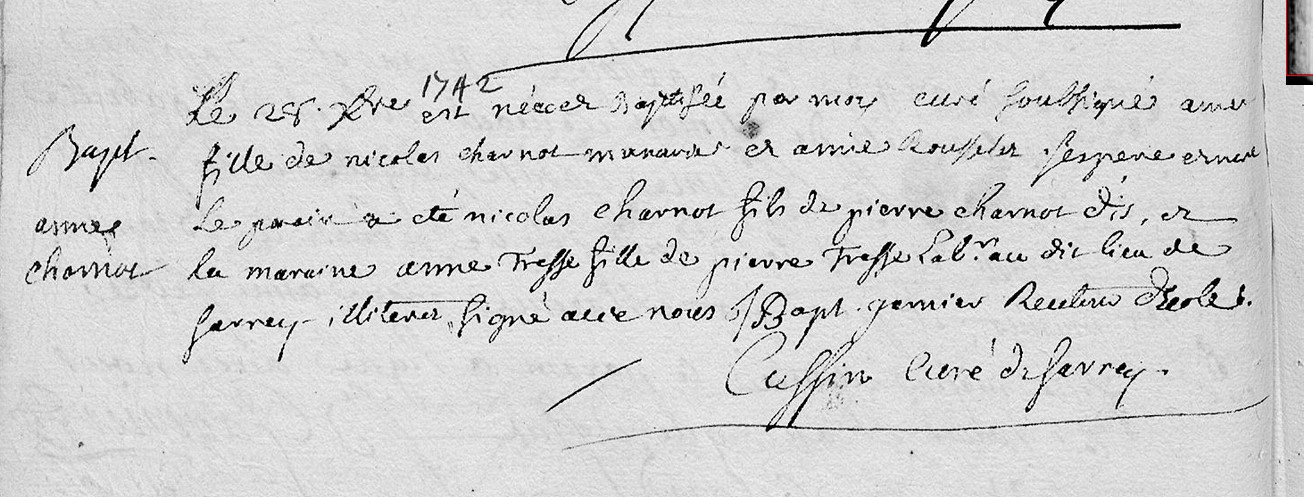 1742
Le 28. Xbre est née et Baptisée par moy curé soussigné anne
Bapt. fille de nicolas charnot manouvrier et anne Rousselet ses pere et mere
anne Le parain a eté nicolas charnot fils de pierre charnot dis, et
charnot la maraine anne Tresse fille de pierre Tresse Labr. au dit lieu de
Sarrey illiterez, signé avec nous J Bapt. garnier Recteur d'Ecole.
Cussin Curé de Sarrey.